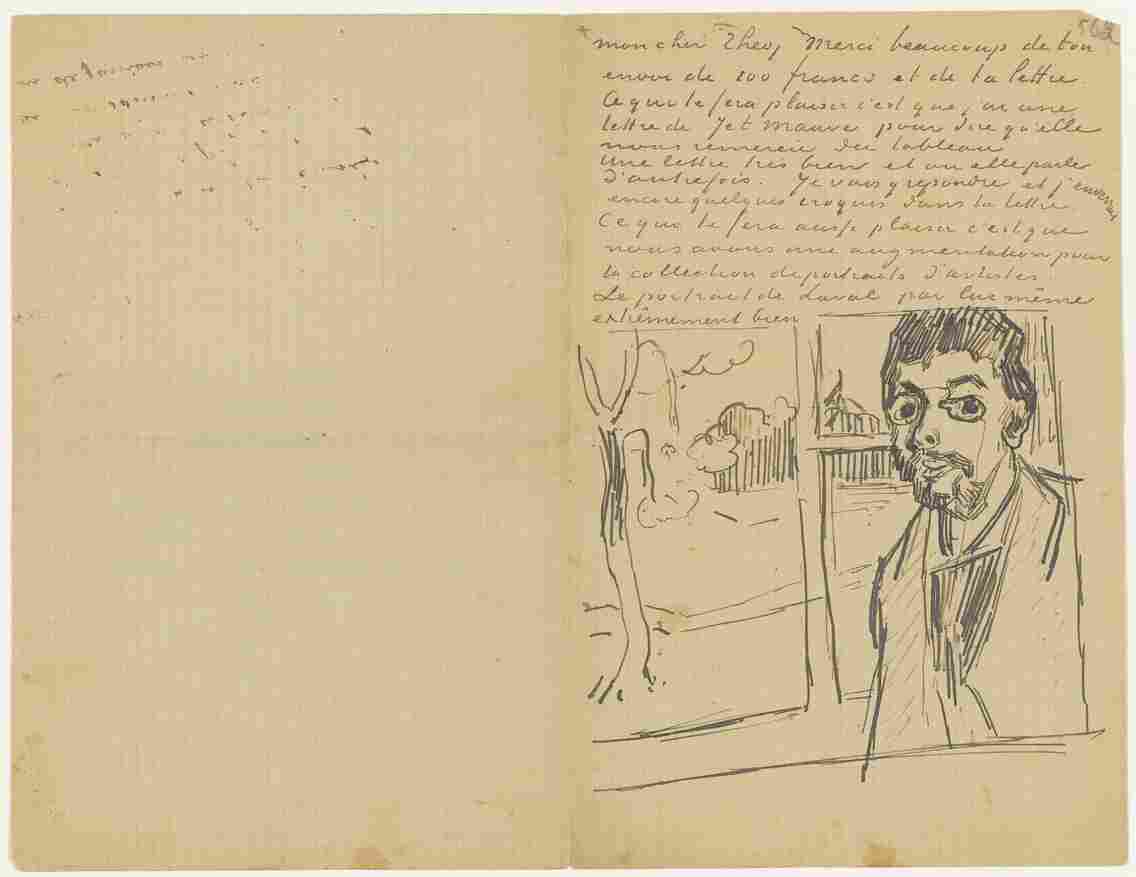 562
mon cher Theo, Merci beaucoup de ton
envoi de 100 francs et de ta lettre.
Ce qui te fera plaisir c'est que j'ai une
lettre de Jet Mauve pour dire qu'elle
nous remercie du tableau
Une lettre très bien et où elle parle
d'autrefois. Je vais y repondre et j'enverrai
encore quelques croquis dans la lettre.
Ce qui te fera aussi plaisir c'est que
nous avons une augmentation pour
la collection de portraits d'artistes.
Le portrait de Laval par lui même
extrêmement bien